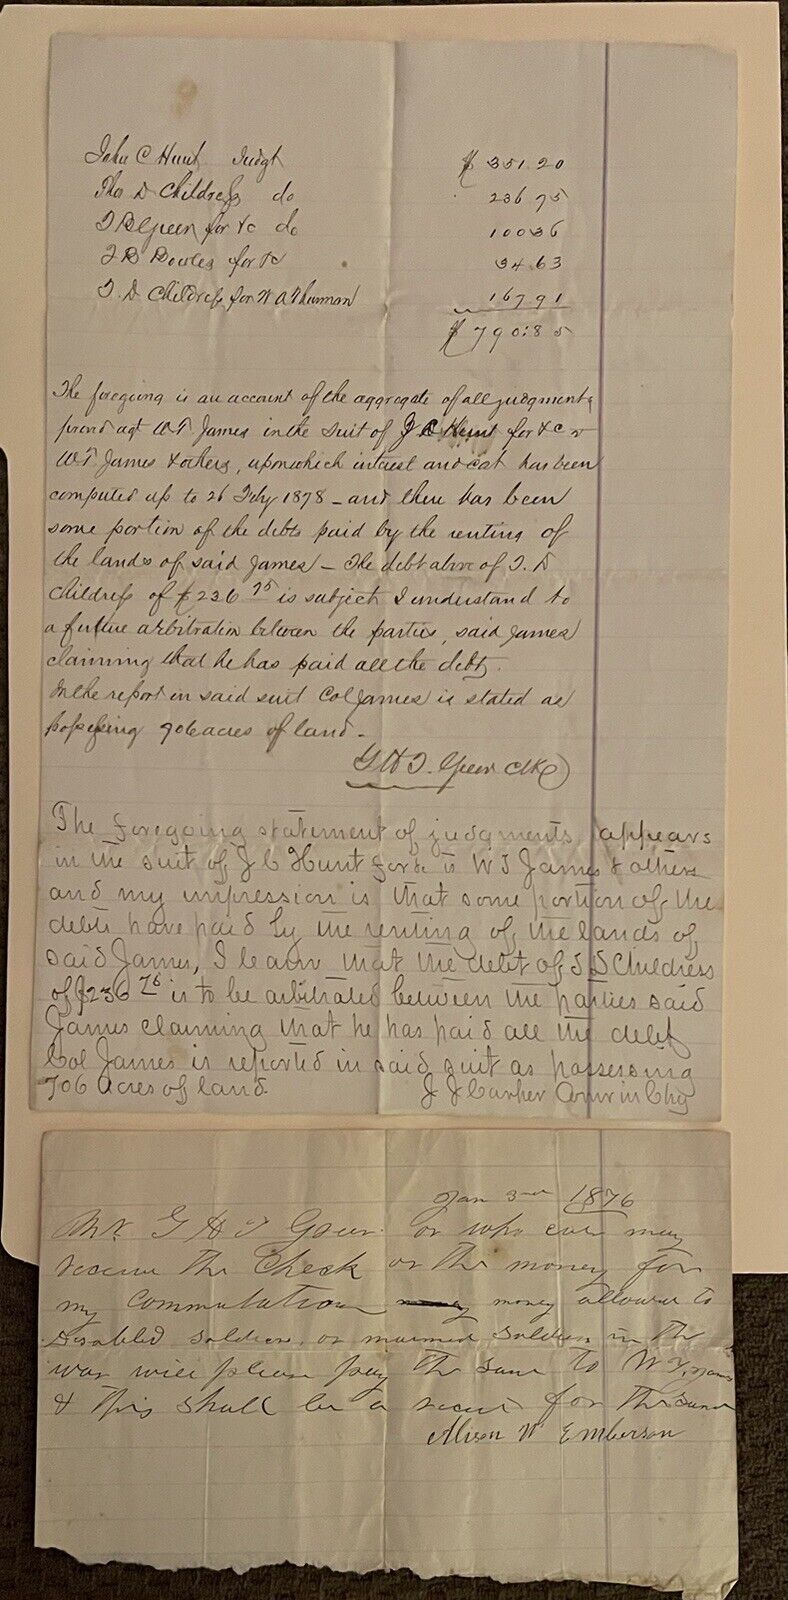 John C Hunt Judgt $351.20
Thos D Childress do 236 75
T B Green for &c do 100 36
J B Bowles for &c 34.63
T. D Childress for W A Thurman 167 91
$790.85
The foregoing is an account of the aggregate of all judgments
proved agt W T James in the suit of J C Hunt for &c v
W T James & others, upon which interest and cost has been
computed up to 26 Feby 1878 - and there has been
some portion of the debts paid by the renting of
the lands of said James - The debt above of T. D
Childress of $236 75 is subject I understand to
a future arbitration between the parties, said James
claiming that he has paid all the debt.
In the report in said suit Col James is stated as
possessing 706 acres of land.
G H T. Greer Clk
The foregoing statement of judgments appears
in the suit of J C Hunt for &c vs W T James & others
and my impression is that some portion of the
debts have paid by the renting of the lands of
said James, I learn that the debt of T D Childress
of $236 75 is to be arbitrated between the parties said
James claiming that he has paid all the debt
Col James is reported in said suit as possessing
706 acres of land. J J Carper Comr in Chy
Jan 3rd 1876
Mr. G H T Greer or who ever may
receive the Check or the money for
my Commutation money allowed to
Disabled soldiers, or maimed soldiers in the
war will please pay the same to W T. James
& this shall be a receit for the same
Alison W Emberson